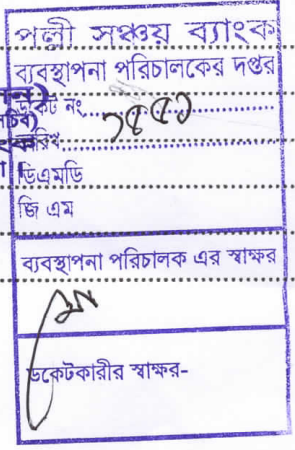 পল্লী সঞ্চয় ব্যাংক
ব্যবস্থাপনা পরিচালকের দপ্তর
ডকেট নং.
তারিখ:
ডিএমডি
জি এম
ব্যবস্থাপনা পরিচালক এর স্বাক্ষর
ডকেটকারীর স্বাক্ষর-